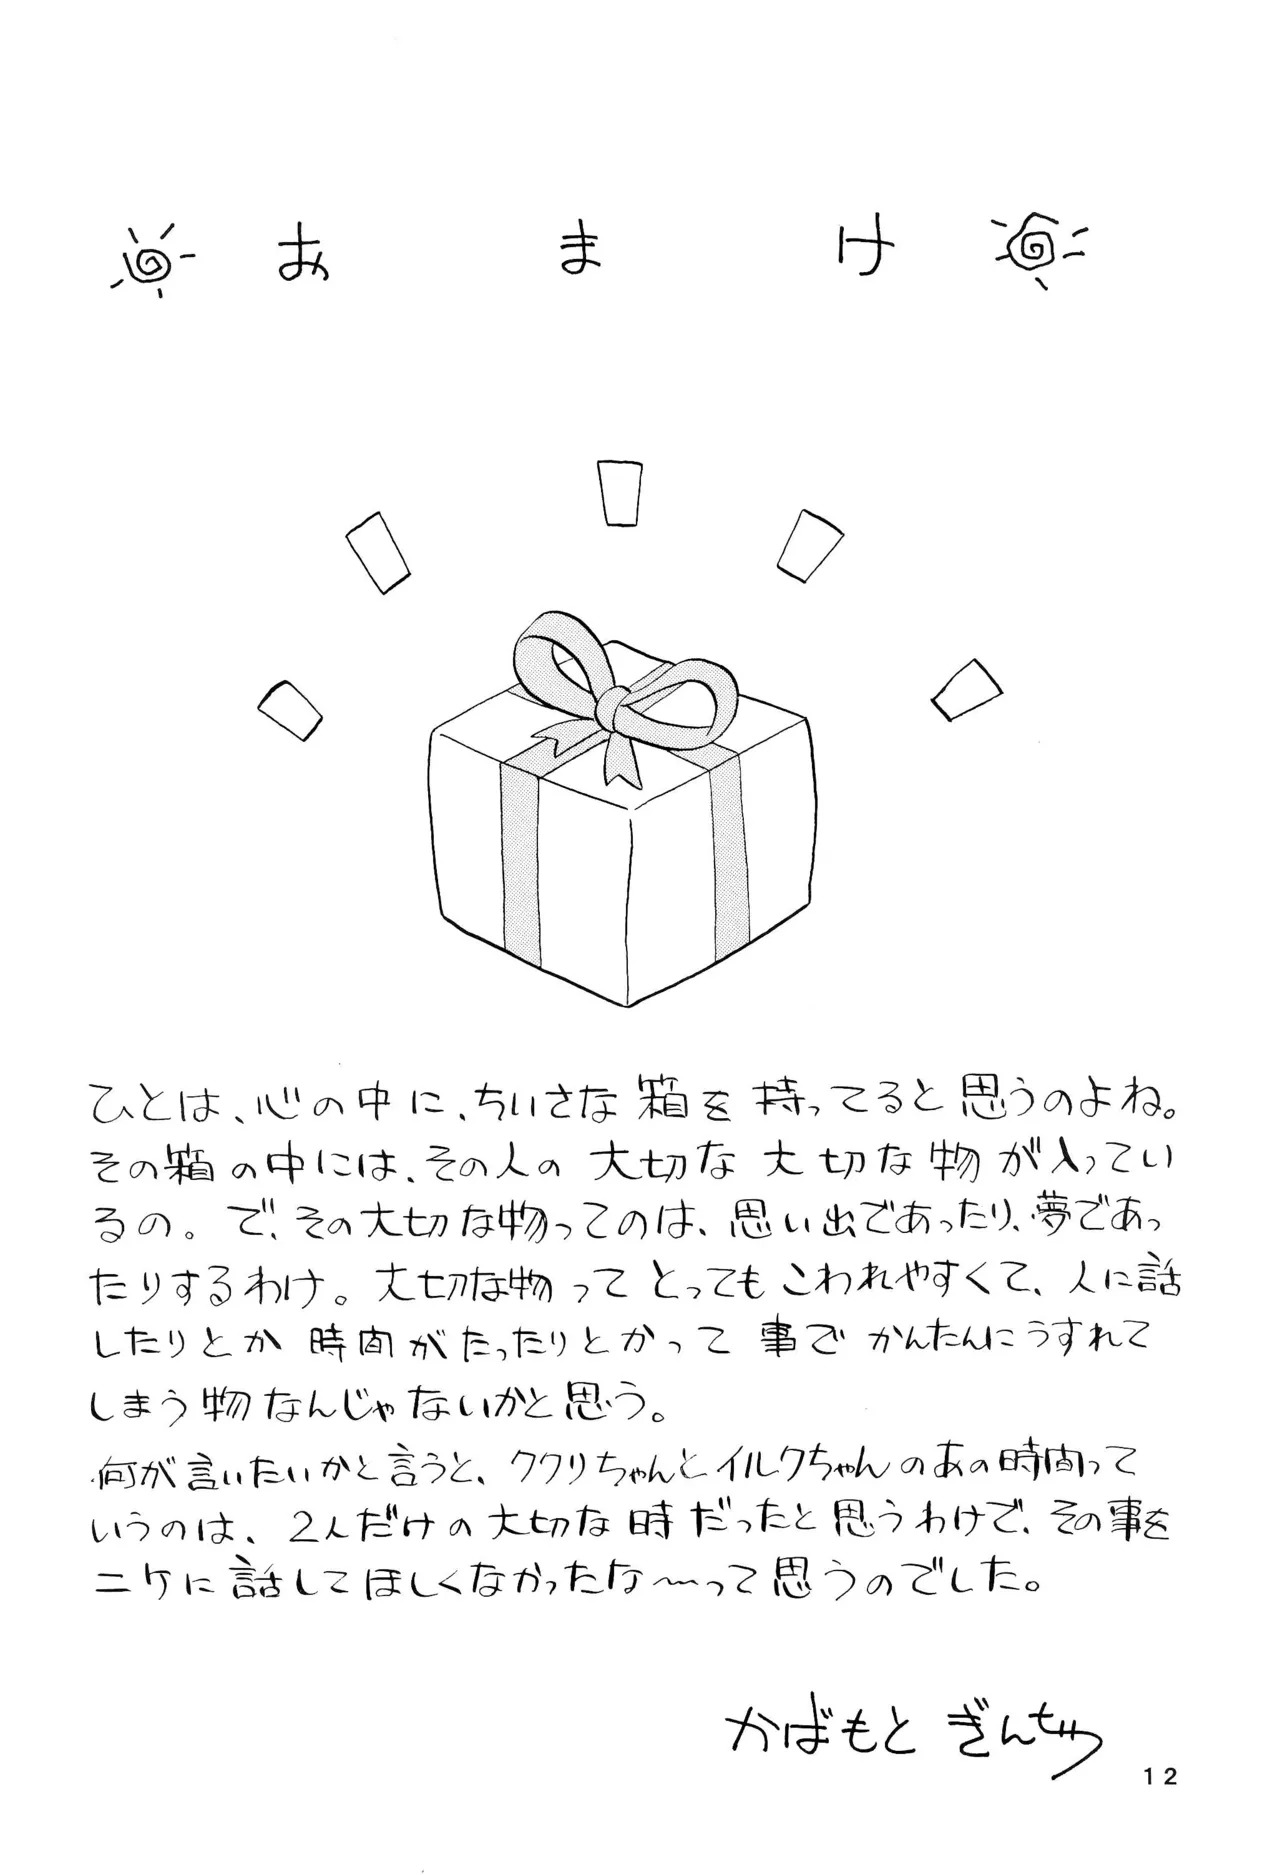 おまけ
ひとは、心の中に、ちいさな箱を持ってると思うのよね。
その箱の中には、その人の大切な大切な物が入ってい
るの。で、その大切な物ってのは、思い出であったり、夢であっ
たりするわけ。大切な物ってとってもこわれやすくて、人に話
したりとか時間がたったりとかって事でかんたんにうすれて
しまう物なんじゃないかと思う。
何が言いたいかと言うと、ククリちゃんとイルクちゃんのあの時間って
いうのは、2人だけの大切な時だったと思うわけで、その事を
ニケに話してほしくなかったな〜って思うのでした。
かばもと ぎんちゅ
12